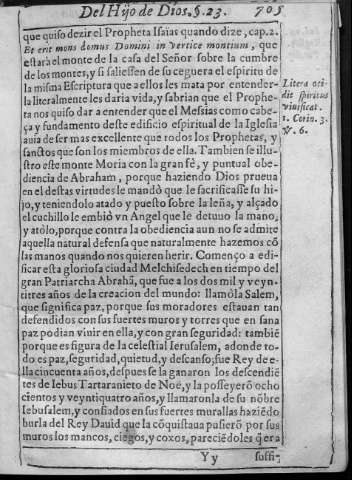 Del Hijo de Dios. §. 23. 705
que quiso dezir el Propheta Isaias quando dize, cap. 2.
Et erit mons domus Domini in vertice montium, que
estarà el monte de la casa del Señor sobre la cumbre
de los montes, y si saliessen de su ceguera el espiritu de
la misma Escriptura que a ellos les mata por entender-
la literalmente les daria vida, y sabrian que el Prophe-
ta nos quiso dar a entender que el Messias como cabe-
ça y fundamento deste edificio espiritual de la Iglesia
auia de ser mas excellente que todos los Prophetas, y
sanctos que son los miembros de ella. Tambien se illu-
stro este monte Moria con la gran fê, y puntual obe-
diencia de Abraham, porque haziendo Dios prueua
en el destas virtudes le mandò que le sacrificasse su hi-
jo, y teniendolo atado y puesto sobre la leña, y alçado
el cuchillo le embiò vn Angel que le detuuo la mano,
y atòlo, porque contra la obediencia aun no se admite
aquella natural defensa que naturalmente hazemos cõ
las manos quando nos quieren herir. Començo a edi-
ficar esta gloriosa ciudad Melchisedech en tiempo del
gran Patriarcha Abrahã, que fue a los dos mil y veyn-
titres años de la creacion del mundo: llamòla Salem,
que significa paz, porque sus moradores estauan tan
defendidos con sus fuertes muros y torres que en sana
paz podian viuir en ella, y con gran seguridad: tambiē
porque es figura de la celestial Ierusalem, adonde to-
do es paz, seguridad, quietud, y descanso; fue Rey de e-
lla cincuenta años, despues se la ganaron los descendiē
tes de Iebus Tartaranieto de Noë, y la posseyerõ ocho
cientos y veyntiquatro años, y llamaronla de su nõbre
Iebusalem, y confiados en sus fuertes murallas haziēdo
burla del Rey Dauid que la cõquistaua pusierõ por sus
muros los mancos, ciegos, y coxos, pareciēdoles q̃ era
Yy suffi-
Litera oci-
dit spiritus
viuificat.
1. Corin. 3.
℣. 6.